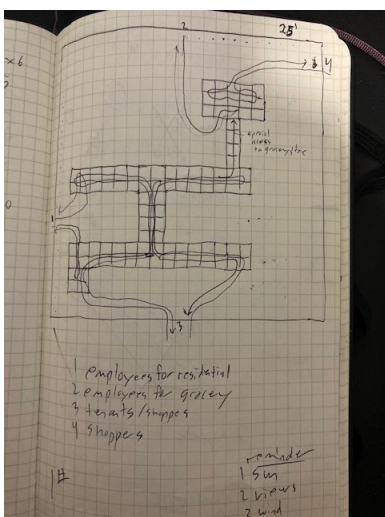 ×6
2
25'
4
special
access
to grocery store
1
3
1 employees for residential
2 employees for grocery
3 tenants/shoppes
4 shoppers
reminder
1 sun
2 views
2 wind